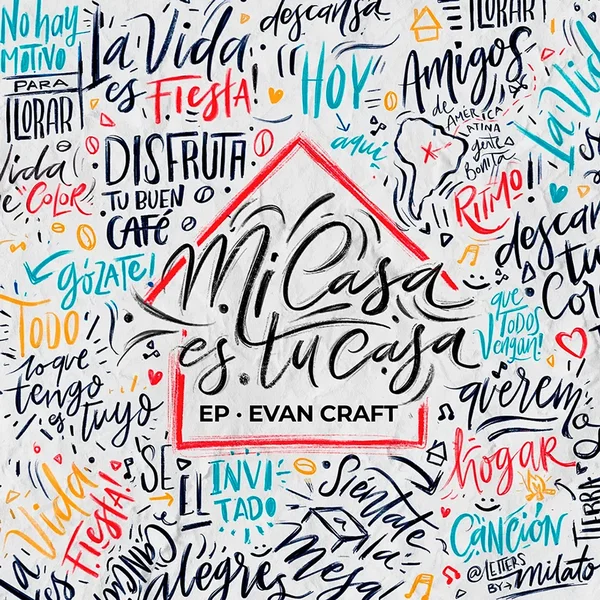 No hay
MOTIVO
PARA
LLORAR
La Vida
es FIESTA!
descansa
"HOY
aquí
Amigos
de AMÉRICA
LATINA
gente
Bonita
LLORAR
La Vid
RITMO!
vida
COLOR
DISFRUTA
TU BUEN
CAFÉ
descans
tu
Cor
GÓZATE!
Mi Casa
es tu casa
EP · EVAN CRAFT
TODO
lo que
tengo
es tuyo
que
TODOS
Vengan!
querem
hogar
La Vida
es FIESTA!
SÉ
EL
INVI
TADO
Siéntate
a la
Mesa
alegre
CANCIÓN
TIERRA
@LETTERS
BY milato